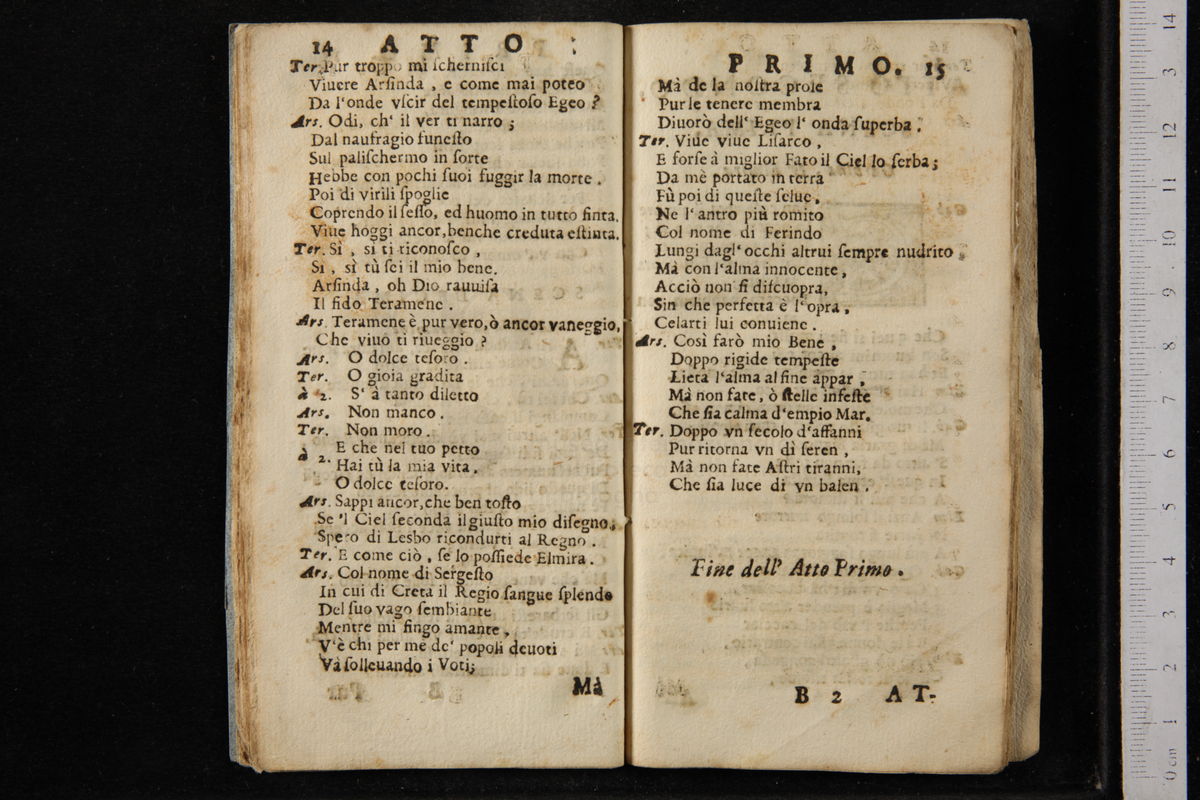 14 ATTO
Ter. Pur troppo mi ſcherniſci
Viuere Arſinda, e come mai poteo
Da l'onde vſcir del tempeſtoſo Egeo?
Ars. Odi, ch' il ver ti narro;
Dal naufragio funeſto
Sul paliſchermo in ſorte
Hebbe con pochi ſuoi fuggir la morte.
Poi di virili ſpoglie
Coprendo il ſeſſo, ed huomo in tutto finta.
Viue hoggi ancor, benche creduta eſtinta.
Ter. Sì, sì ti riconoſco,
Si, sì tù ſei il mio bene.
Arſinda, oh Dio rauuiſa
Il fido Teramene.
Ars. Teramene è pur vero, ò ancor vaneggio,
Che viuo ti riueggio?
Ars. O dolce teſoro.
Ter. O gioia gradita
à 2. S' à tanto diletto
Ars. Non manco.
Ter. Non moro.
à 2. E che nel tuo petto
Hai tù la mia vita,
O dolce teſoro.
Ars. Sappi ancor, che ben toſto
Se 'l Ciel ſeconda il giuſto mio diſegno,
Spero di Lesbo ricondurti al Regno.
Ter. E come ciò, ſe lo poſſiede Elmira.
Ars. Col nome di Sergeſto
In cui di Creta il Regio ſangue ſplende
Del ſuo vago ſembiante
Mentre mi fingo amante,
V'è chi per me de' popoli deuoti
Và ſolleuando i Voti;
Mà
PRIMO. 15
Mà de la noſtra prole
Pur le tenere membra
Diuorò dell' Egeo l' onda ſuperba.
Ter. Viue viue Liſarco,
E forſe à miglior Fato il Ciel lo ſerba;
Da mè portato in terra
Fù poi di queſte ſelue,
Ne l' antro più romito
Col nome di Ferindo
Lungi dagl' occhi altrui ſempre nudrito,
Mà con l'alma innocente,
Acciò non ſi diſcuopra,
Sin che perfetta è l'opra,
Celarti lui conuiene.
Ars. Così farò mio Bene,
Doppo rigide tempeſte
Lieta l'alma al fine appar,
Mà non fate, ò ſtelle infeſte
Che ſia calma d'empio Mar.
Ter. Doppo vn ſecolo d'affanni
Pur ritorna vn dì ſeren,
Mà non fate Aſtri tiranni,
Che ſia luce di vn balen.
Fine dell' Atto Primo.
B 2 AT-
14
3
13
12
11
10
9
2
8
7
6
5
4
3
1
2
1
0 cm